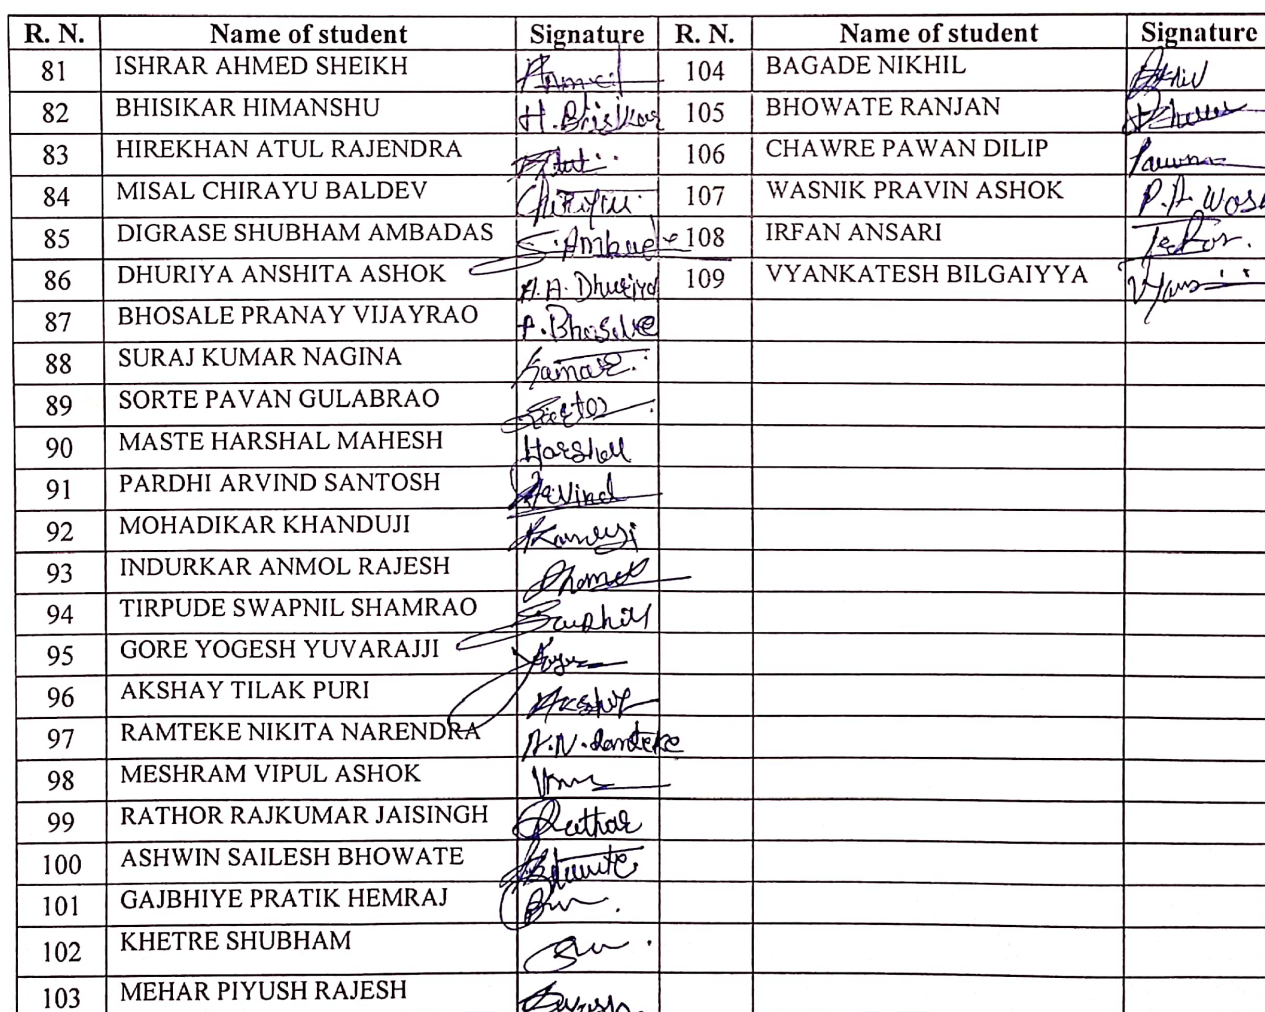 R. N. Name of student Signature R. N. Name of student Signature
81 ISHRAR AHMED SHEIKH 104 BAGADE NIKHIL
82 BHISIKAR HIMANSHU H. Bhisikar 105 BHOWATE RANJAN
83 HIREKHAN ATUL RAJENDRA 106 CHAWRE PAWAN DILIP
84 MISAL CHIRAYU BALDEV 107 WASNIK PRAVIN ASHOK P. A. Wos
85 DIGRASE SHUBHAM AMBADAS 108 IRFAN ANSARI
86 DHURIYA ANSHITA ASHOK A. A. Dhuriya 109 VYANKATESH BILGAIYYA
87 BHOSALE PRANAY VIJAYRAO P. Bhosale
88 SURAJ KUMAR NAGINA
89 SORTE PAVAN GULABRAO
90 MASTE HARSHAL MAHESH Harshal
91 PARDHI ARVIND SANTOSH Arvind
92 MOHADIKAR KHANDUJI
93 INDURKAR ANMOL RAJESH
94 TIRPUDE SWAPNIL SHAMRAO
95 GORE YOGESH YUVARAJJI
96 AKSHAY TILAK PURI Akshay
97 RAMTEKE NIKITA NARENDRA N. N. Ramteke
98 MESHRAM VIPUL ASHOK
99 RATHOR RAJKUMAR JAISINGH Rathor
100 ASHWIN SAILESH BHOWATE
101 GAJBHIYE PRATIK HEMRAJ
102 KHETRE SHUBHAM
103 MEHAR PIYUSH RAJESH